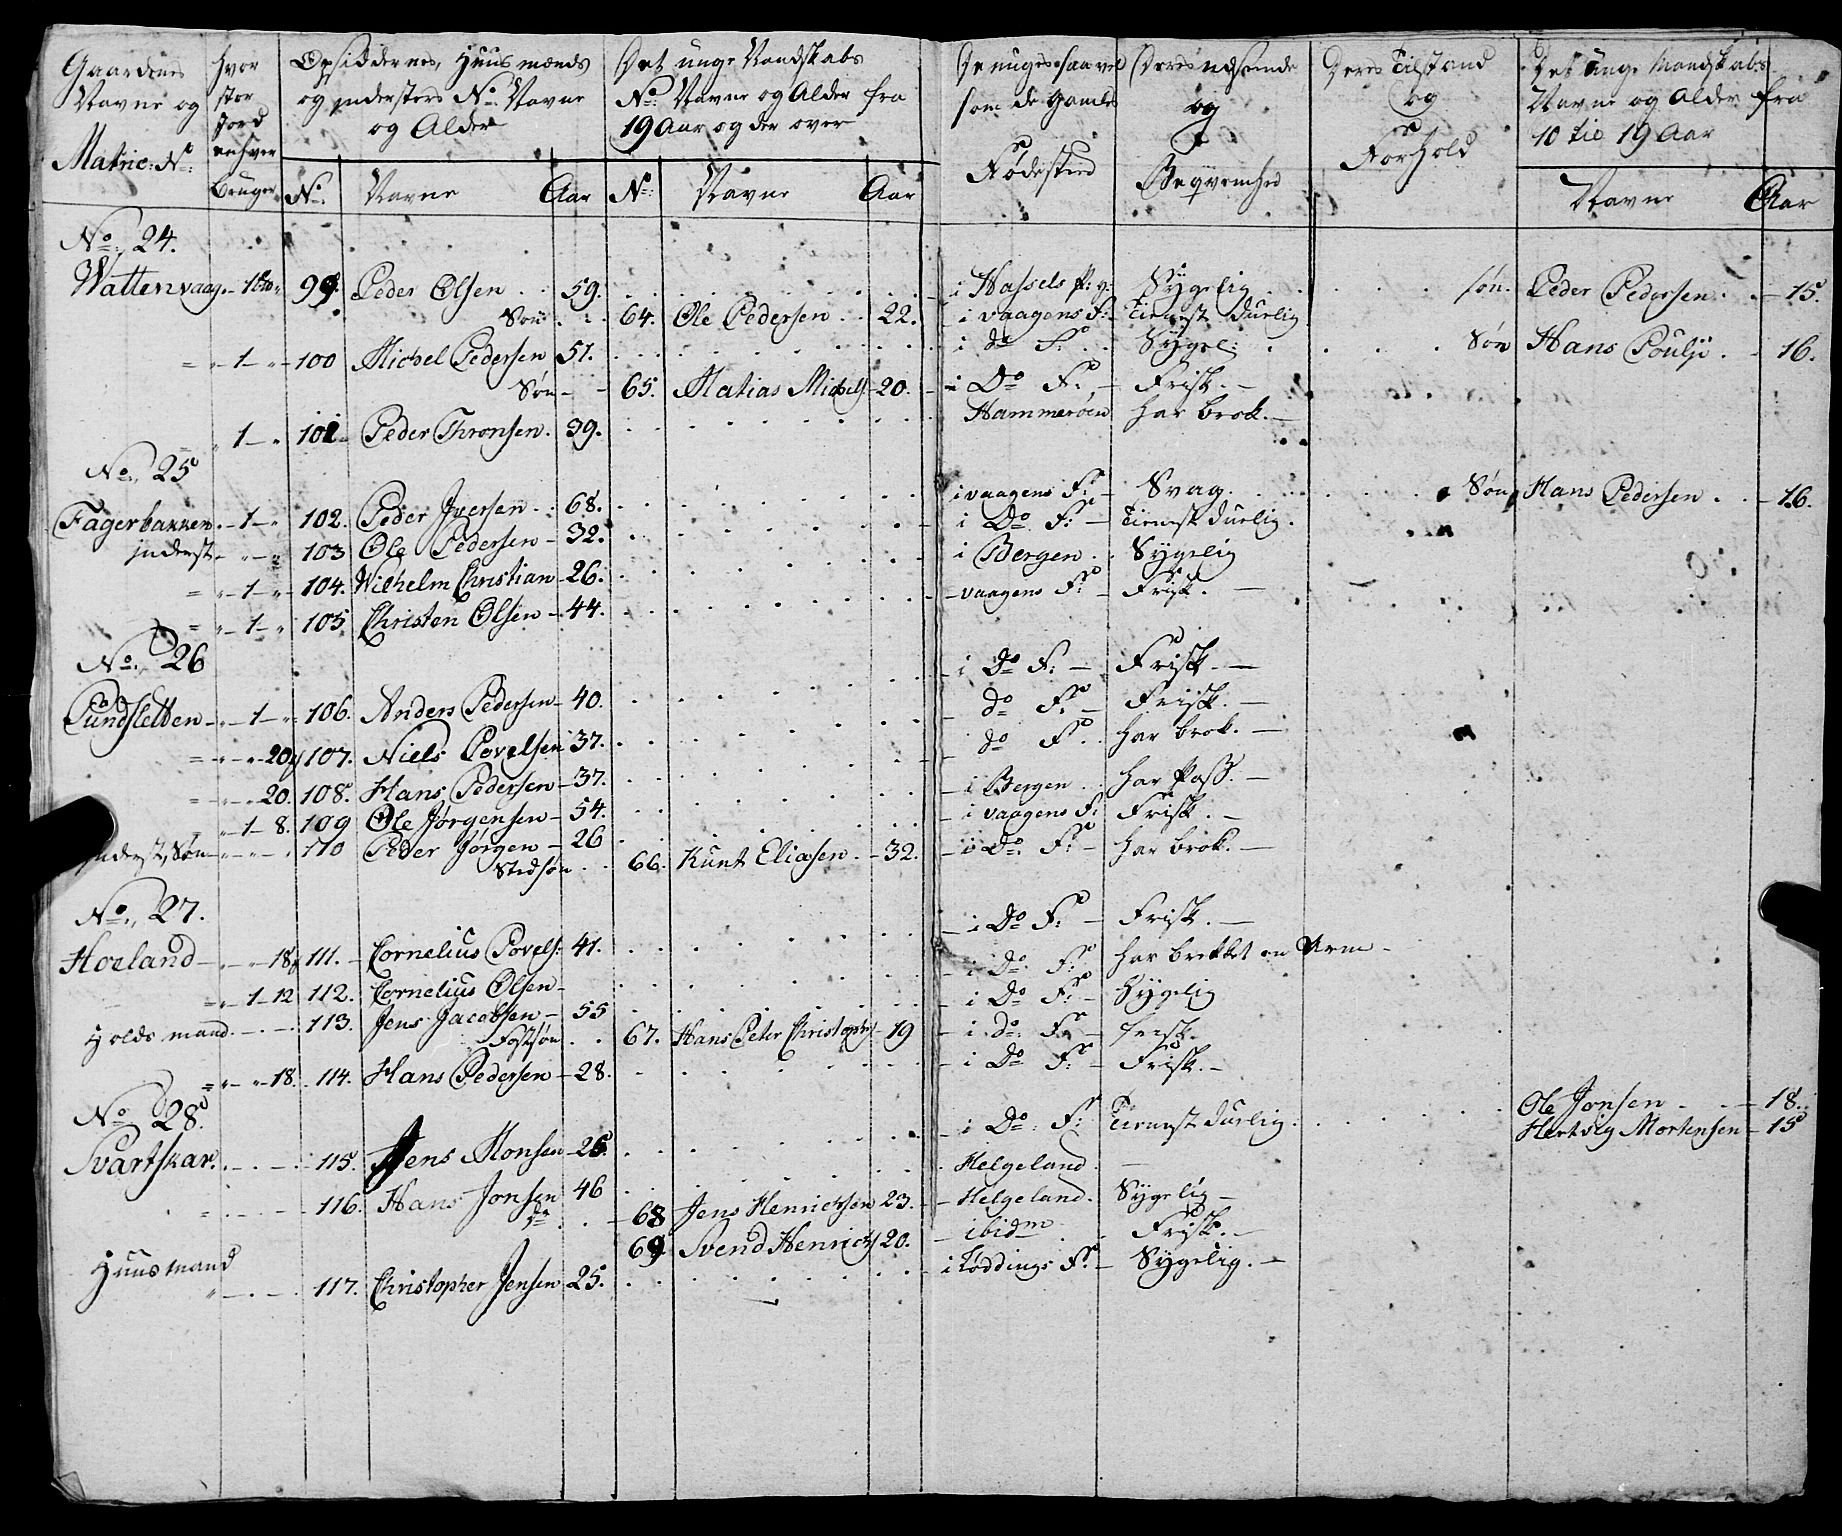 Gaardenes Navne og Matric: No:
hvor stor Jord enhver bruger
Opsiddernes, Huusmænds og jndersters No: Navne og Alder
Det unge Mandskabs No: Navne og Alder fra 19 Aar og der over
De unges saavel som de gamles Fødested
Deres udseende og Beqvemhed
Deres Tilstand og Forhold
Det unge Mandskabs Navne og Alder fra 10 til 19 Aar
No: Navne Aar No: Navne Aar Navne Aar
No: 24.
Wattenvaag. 99. Peder Olsen 59. i Hassels Pr: g: Sygelig søn. Peder Pedersen 15.
Søn 64. Ole Pedersen 22. i vaagens F: Tienst durlig
1 100 Michel Pedersen 51. i do F. Sygel: Søn Hans Poulss: 16.
Søn 65. Matias Michels: 20. i Do F: Frisk.
1 101 Peder Thronsen. 39. Hammerøen har brok.
No: 25
Fagerbakken. 1 102. Peder Jversen 68. i vaagens F: Svag. Søn Hans Pedersen 16.
jnderst 103 Ole Pedersen 32. i Do F: Tienst durlig.
1 104. Wilhelm Christian 26. i Bergen Sygelig
1 105 Christen Olsen 44. vaagens F: Frisk.
No: 26 i Do F: Frisk.
Pundsletten 1 106. Anders Pedersen 40. do F: Frisk.
20 107. Niels Povelsen 37. do F. har brok.
20. 108. Hans Pedersen 37. i Bergen har Pass.
1 8. 109 Ole Jørgensen 54. i vaagens F: Frisk.
jnderst, Søn 110 Peder Jørgen 26 i Do. F: har brok.
Stedsøn 66. Kunt Eliasen 32.
No: 27. i Do F: Frisk.
Hoeland 18 111. Cornelius Povels: 41. i Do. F: har brekket en Arm
1 12 112. Cornelius Olsen i Do F: Sygelig
Holds mand 113. Jens Jacobsen 55 i do. F: frisk.
Fostsøn 67. Hans Peter Christophs 19 i Do F: Frisk.
18. 114. Hans Pedersen 28.
No: 28. Ole Jonsen 18.
Svartskar. 115. Jens Monsen 26 i Do. F: Tienst durlig. Hertvig Mortensen 15
116. Hans Jonsen 46 Helgeland.
do 68 Jens Henrichsen 23. Helgeland. Sygelig
69 Svend Henrichs 20. ibidm Frisk.
Huusmand 117. Christopher Jensen 25. i Loddings F: Sygelig.